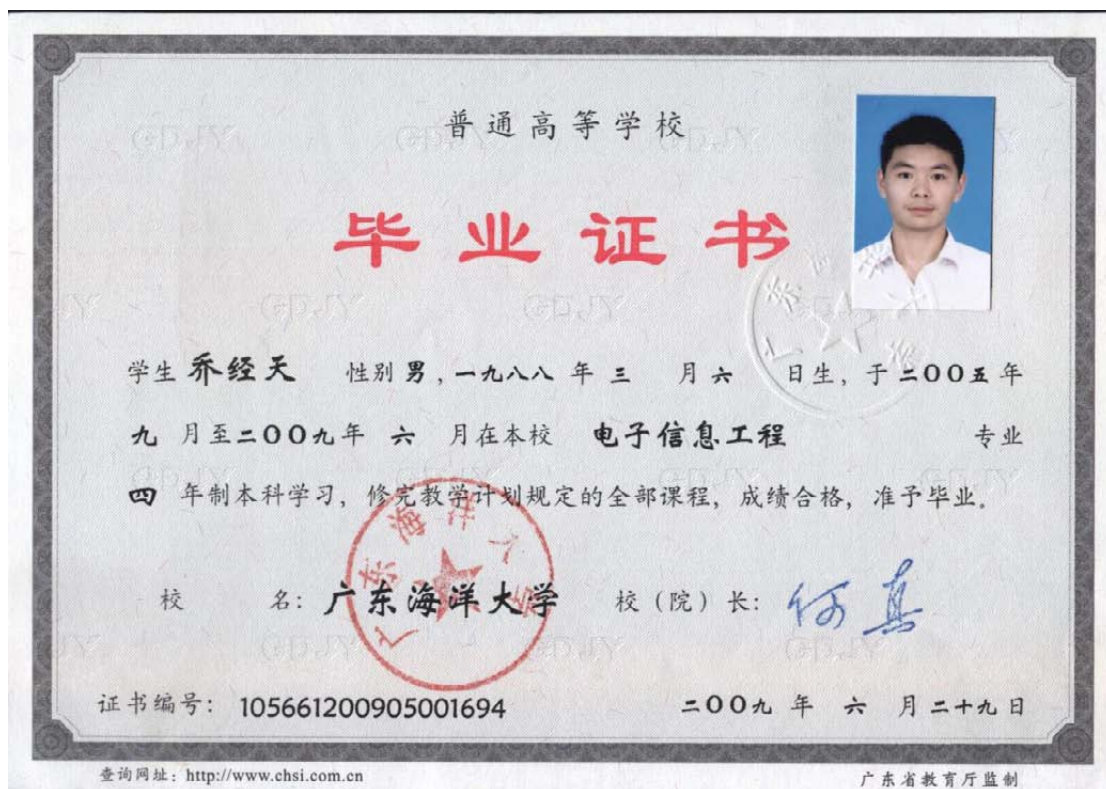 普通高等学校
毕业证书
学生 乔经天 性别 男, 一九八八 年 三 月 六 日生, 于 二〇〇五 年
九 月至 二〇〇九 年 六 月在本校 电子信息工程 专业
四 年制本科学习, 修完教学计划规定的全部课程, 成绩合格, 准予毕业.
校 名: 广东海洋大学 校（院）长: 何真
广东海洋大学
证书编号: 105661200905001694 二〇〇九 年 六 月 二十九 日
查询网址: http://www.chsi.com.cn 广东省教育厅监制
GDJY